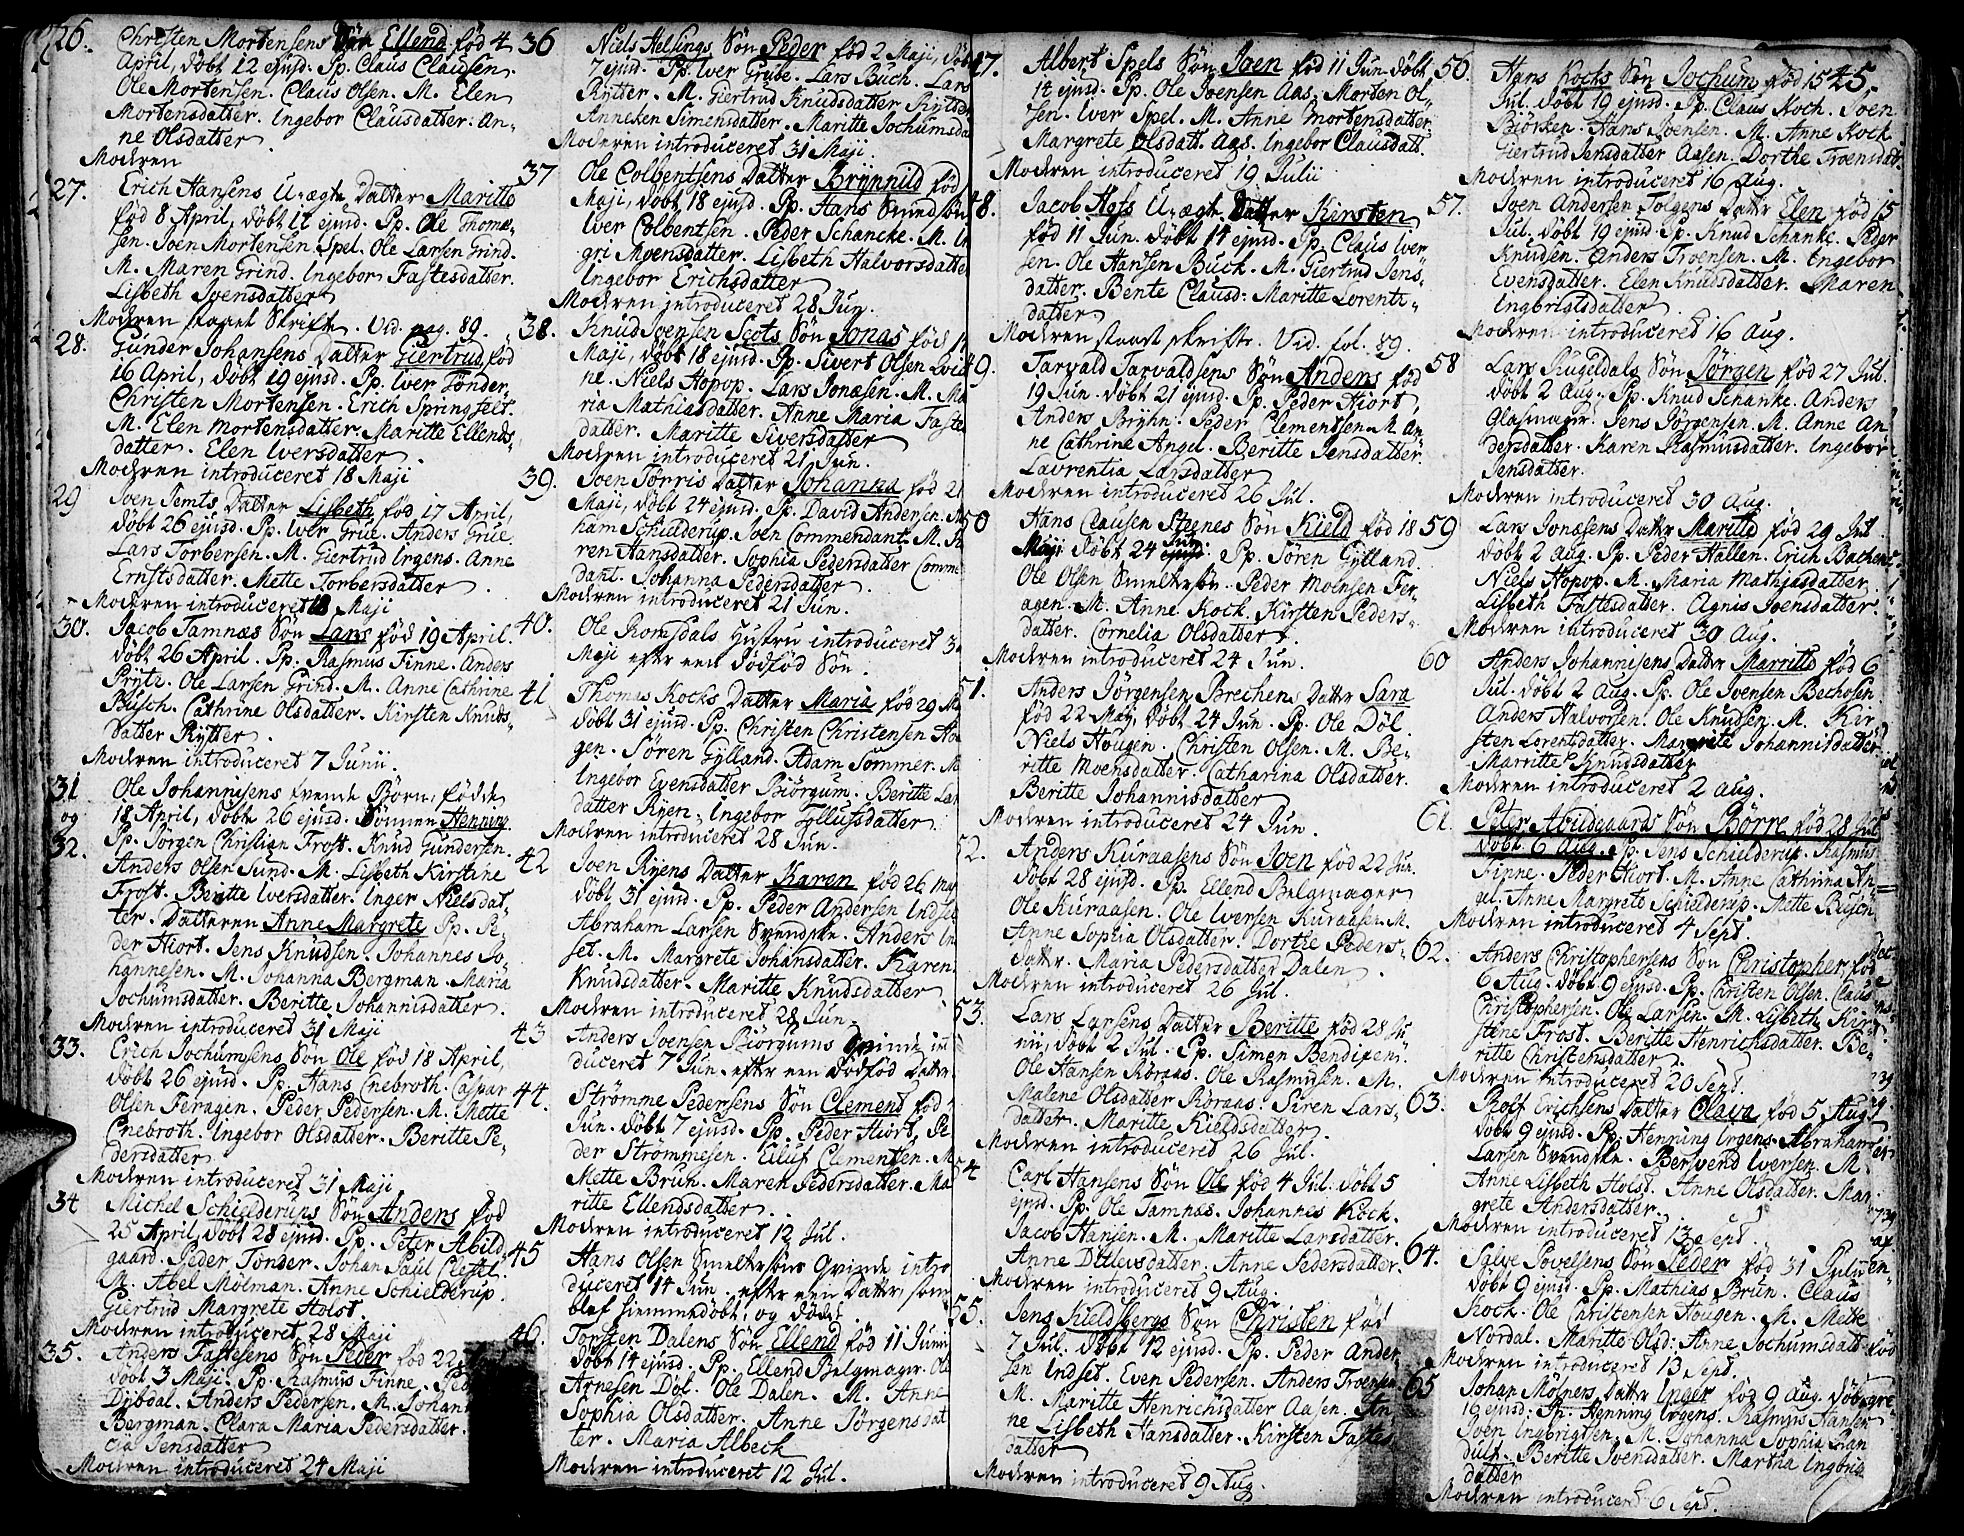 26. Christen Mortensens Søn Ellend fød 4
April, døbt 12 ejusd. Pp. Claus Clausen.
Ole Mortensen. Claus Olsen. M. Elen
Mortensdatter. Ingebor Clausdatter. An-
ne Olsdatter
Modren
27. Erich Hansens U-ægte Datter Maritte
fød 8 April, døbt 12 ejusd. Pp. Ole Thome-
sen. Joen Mortensen Spel. Ole Larsen Grind.
M. Maren Grind. Ingebor Fastesdatter.
Lisbeth Joensdatter
Modren staaet Skrifte. Vid. pag. 89.
28. Gunder Johansens Datter Giertrud fød
16 April, døbt 19 ejusd. Pp. Iver Tønder.
Christen Mortensen. Erich Springfelt.
M. Elen Mortensdatter. Maritte Ellends-
datter. Elen Iversdatter
Modren introduceret 18 Maji
29 Joen Jemts Datter Lisbeth fød 17 April,
døbt 26 ejusd. Pp. Iver Grue. Anders Grue.
Lars Torbersen. M. Giertrud Irgens. Anne
Ernstsdatter. Mette Torbersdatter
Modren introduceret 18 Maji
30. Jacob Tamnæs Søn Lars fød 19 April.
døbt 26 April. Pp. Rasmus Finne. Anders
Pryte. Ole Larsen Grind. M. Anne Cathrine
Busch. Cathrine Olsdatter. Kirsten Knuds-
datter Rytter.
Modren introduceret 7 Junii.
31 Ole Johannisens tvende Børn, fødde
og 18 April, døbt 26 ejusd. Sønnen Henning
32. Pp. Jørgen Christian Frost. Knud Gundersen.
Anders Olsen Sund. M. Lisbeth Kirstine
Frost. Beritte Iversdatter. Inger Nielsdat-
ter. Datteren Anne Margrete Pp. Pe-
der Hiort. Jens Knudsen. Johannes Jo-
hannesen. M. Johanna Bergman. Maria
Jochumsdatter. Beritte Johannisdatter.
Modren introduceret 31 Maji
33. Erich Jochumsens Søn Ole fød 18 April,
døbt 26 ejusd. Pp. Hans Cnebroth. Caspar
Olsen Feragen. Peder Pedersen. M. Mette
Cnebroth. Ingebor Olsdatter. Beritte Pe-
dersdatter
Modren introduceret 31 Maji
34 Michel Schielderups Søn Anders fød
25 April, døbt 28 ejusd. Pp. Peter Abild-
gaard. Peder Tonder. Johan Paul Clestel.
M. Abel Mølman. Anne Schielderup.
Giertrud Margrete Holst
Modren introduceret 28 Maji
35. Anders Fastesens Søn Peder fød 22
døbt 3 Maji. Pp. Rasmus Finne. Ped
Dybdal. Anders Pedersen. M. Johan
Bergman. Clara Maria Pedersdatter.
cia Jensdatter
Modren introduceret 24 Maji
36 Niels Helsings Søn Peder fød 2 Maji, døbt
7 ejusd. Pp. Iver Grube. Lars Buch. Lars
Rytter. M. Giertrud Knudsdatter Rytter
Anneken Simensdatter. Maritte Jochumsda
Modren introduceret 31 Maji
37 Ole Colbentsens Datter Brynnild fød
Maji, døbt 18 ejusd. Pp. Hans Smidsøn
Iver Colbentsen. Peder Schancke. M. In
gri Moensdatter. Lisbeth Halvorsdatter
Ingebor Erichsdatter
Modren introduceret 28 Jun.
38. Knud Joensen Scots Søn Jonas fød 1
Maji, døbt 18 ejusd. Pp. Sivert Olsen Lvid
ne. Niels Hopop. Lars Jonæsen. M. Ma
ria Mathiasdatter. Anne Maria Faste
datter. Maritte Siversdatter
Modren introduceret 21 Jun.
39. Joen Tørris Datter Johanna fød 21
Maji, døbt 24 ejusd. Pp. David Andersen. A
ham Schielderup. Joen Commendant. M. Ka
ren Hansdatter. Sophia Pedersdatter Comme
dant. Johanna Pedersdatter
Modren introduceret 21 Jun.
40. Ole Romsdals Hustru introduceret 3
Maji efter een dødfød Søn
41 Thomas Kocks Datter Maria fød 29 Ma
døbt 31 ejusd. Pp. Christen Christensen Hou
gen. Søren Gylland. Adam Sommer. M
Ingebor Evensdatter Biørgum. Beritte Lar
datter Ryen. Ingebor Tollufsdatter.
Modren introduceret 28 Jun.
42 Joen Ryens Datter Karen fød 26 May
døbt 31 ejusd. Pp. Peder Andersen Indset
Abraham Larsen Svendske. Anders In
set. M. Margrete Johansdatter. Karen
Knudsdatter. Maritte Knudsdatter
Modren introduceret 28 Jun.
43 Anders Joensen Biørgums Qvinde in
duceret 7 Jun. efter een dødfød Datter.
44. Strømme Pedersens Søn Clement fød
Jun. døbt 7 ejusd. Pp. Peder Hiort. Pe
der Strømmesen. Eiluf Clementsen. M.
Mette Brun. Maren Pedersdatter. Ma
ritte Ellendsdatter.
Modren introduceret 12 Jul.
45 Hans Olsen Smeltersøns Qvinde intro
duceret 14 Jun. efter een Datter, som
blef hiemmedøbt, og døde
46. Torsten Dalens Søn Ellend fød 11 Junii
døbt 14 ejusd. Pp. Ellend Belgmager. Ole
Arnesen Døl. Ole Dalen. M. Anne
Sophia Olsdatter. Anne Jørgensdat
ter. Maria Albeck
Modren introduceret 12 Jul.
47. Albert Spels Søn Joen fød 11 Jun. døbt
14 ejusd. Pp. Ole Joensen Aas. Morten Ol-
sen. Iver Spel. M. Anne Mortensdatter.
Margrete Olsdatt. Aas. Ingebor Clausdatt.
Modren introduceret 19 Julii
48. Jacob Hofs U-ægte Datter Kirsten
fød 11 Jun. døbt 14 ejusd. Pp. Claus Iver-
sen. Ole Hansen Buck. M. Giertrud Jens-
datter. Bente Clausd: Maritte Lorentz-
datter
Modren staaet skrifte. Vid. fol. 89.
49. Tarvald Tarvaldsens Søn Anders fød
19 Jun. døbt 21 ejusd. Pp. Peder Hiort.
Anders Bryhn. Peder Clementsen. M. An-
ne Cathrine Angel. Beritte Jensdatter.
Laurentia Larsdatter
Modren introduceret 26 Jul.
50 Hans Clausen Stegnes Søn Kield fød 18
Maji døbt 24 Jun. Pp. Søren Gylland.
Ole Olsen Smeltersøn. Peder Moensen Fer-
agen. M. Anne Kock. Kirsten Peders-
datter. Cornelia Olsdatter.
Modren introduceret 24 Jun.
51. Anders Jørgensen Brechens Datter Sara
fød 22 May, døbt 24 Jun. Pp. Ole Døl.
Niels Hougen. Christen Olsen. M. Be-
ritte Moensdatter. Catharina Olsdatter.
Beritte Johannisdatter
Modren introduceret 24 Jun.
52. Anders Kuraasens Søn Joen fød 22 Jun.
døbt 28 ejusd. Pp. Ellend Belgmager
Ole Kuraasen. Ole Iversen Kuraasen. M.
Anne Sophia Olsdatter. Dorthe Peders-
datter. Maria Pedersdatter Dalen
Modren introduceret 26 Jul.
53. Lars Larsens Datter Beritte fød 28 Ju-
nii, døbt 2 Jul. Pp. Simen Bendixen.
Ole Hansen Røraas. Ole Rasmusen. M.
Malene Olsdatter Røraas. Siren Lars-
datter. Maritte Kieldsdatter.
Modren introduceret 26 Jul.
54 Carl Hansens Søn Ole fød 4 Jul. døbt 5
ejusd. Pp. Ole Tamnæs. Johannes Kock.
Jacob Hansen. M. Maritte Larsdatter.
Anne Ditleusdatter. Anne Pedersdatter.
Modren introduceret 9 Aug.
55. Jens Kieldsbergs Søn Christen fød
7 Jul. døbt 12 ejusd. Pp. Peder Ander
sen Indset. Even Pedersen. Anders Troensen
M. Maritte Henrichsdatter Aasen. An
ne Lisbeth Hansdatter. Kirsten Fastes
datter
Modren introduceret 9 Aug.
45.
56. Hans Kocks Søn Jochum fød 15
Jul. døbt 19 ejusd. Pp. Claus Koch. Joen
Biørken. Hans Joensen. M. Anne Kock
Giertrud Jensdatter Aasen. Dorthe Troensdat.
Modren introduceret 16 Aug.
57. Joen Andersen Tolgens Datter Elen fød 15
Jul. døbt 19 ejusd. Pp. Knud Schanke. Peder
Knudsen. Anders Troensen. M. Ingebor
Evensdatter. Elen Knudsdatter. Maren
Ingbrigtsdatter
Modren introduceret 16 Aug.
58 Lars Rugeldals Søn Jörgen fød 27 Jul.
døbt 2 Aug. Pp. Knud Schanke. Anders
Glasmager. Jens Jørgensen. M. Anne An-
dersdatter. Karen Rasmusdatter. Ingebor
Jensdatter.
Modren introduceret 30 Aug.
59 Lars Jonæsens Datter Maritte fød 29 Jul.
døbt 2 Aug. Pp. Peder Hallen. Erich Bachens
Niels Hopop. M. Maria Mathiasdatter.
Lisbeth Fastesdatter. Agnis Joensdatter
Modren introduceret 30 Aug.
60 Anders Johannisens Datter Marritte fød 6
Jul. døbt 2 Aug. Pp. Ole Joensen Bechosen
Anders Halvorsen. Ole Knudsen. M. Kir
sten Lorentsdatter. Margrete Johannisdatter
Marritte Knudsdatter
Modren introduceret 2 Aug.
61. Peter Abildgaards Søn Börre fød 28 Jul.
døbt 6 Aug. Pp. Jens Schielderup. Rasmus
Finne. Peder Hiort. M. Anne Cathrina An
gel. Anne Margrete Schielderup. Mette Busch
Modren introduceret 4 Sept
62. Anders Christophersens Søn Christopher, fød
6 Aug. døbt 9 ejusd. Pp. Christen Olsen. Claus
Christophersen. Ole Larsen. M. Lisbeth Kir
stene Frost. Beritte Henrichsdatter. Be-
ritte Christensdatter.
Modren introduceret 20 Sept.
63. Roff Erichsens Datter Clara fød 5 Aug.
døbt 9 ejusd. Pp. Henning Irgens. Abraham
Larsen Svendske. Bersvend Iversen. M.
Anne Lisbeth Holst. Anne Olsdatter. Mar-
grete Andersdatter.
Modren introduceret 13 Sept.
64. Salve Povelsens Søn Peder fød 31 Julii
døbt 9 ejusd. Pp. Mathias Brun. Claus
Kock. Ole Christensen Hougen. M. Mette
Nordal. Maritte Olsd: Anne Jochumsdatt
Modren introduceret 13 Sept.
65 Johan Mölners Datter Inger fød 9 Aug. døbt
19 ejusd. Pp. Henning Irgens. Rasmus Hansen
Joen Ingbrigtsen. M. Johanna Sophia Bran
dult. Beritte Joensdatter. Martha Ingbrig
datter
Modren introducerd 6 Sept.